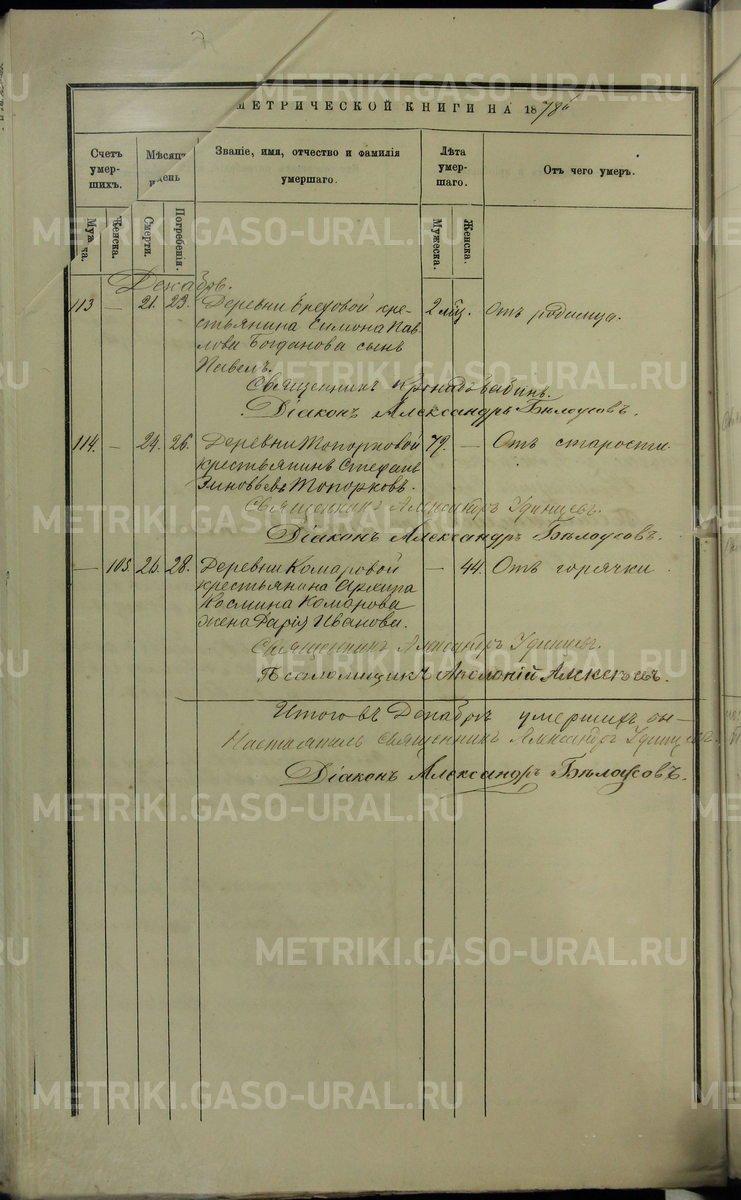 МЕТРИЧЕСКОЙ КНИГИ НА 1878 г
Счетъ умершихъ.
Мѣсяцъ и день
Званіе, имя, отчество и фамилія умершаго.
Лѣта умершаго.
Отъ чего умеръ.
Женска.
Смерти.
Погребенія.
Мужеска.
Женска.
Декабрь.
113 — 21. 23. Деревни кре- 2 мѣц. Отъ родимца.
стьянина Симона Пав
лова Богданова сынъ
Павелъ.
Священникъ
Діаконъ Александръ Бѣлоусовъ.
114. — 24. 26. Деревни Топорковой 79. — Отъ старости.
крестьянинъ Стефанъ
Зиновьевъ Топорковъ.
Священникъ Александръ Удинцевъ.
Діаконъ Александръ Бѣлоусовъ.
— 103. 26. 28. Деревни Комаровой — 44. Отъ горячки.
крестьянина
Космина Комарова
жена Дарія Иванова.
Священникъ Александръ Удинцевъ.
Псаломщикъ Алексѣевъ.
Итого въ Декабрѣ умершихъ
Настоятель Священникъ Александръ Удинцевъ.
Діаконъ Александръ Бѣлоусовъ.
METRIKI.GASO-URAL.RU